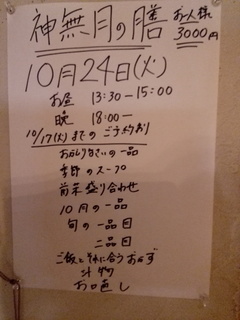 神無月の膳 お一人様
3000円
10月24日(火)
お昼 13:30-15:00
晩 18:00-
10/17(火)までのご予約
季節のスープ
前菜盛り合わせ
10月の一品
旬の一品目
二品目
ご飯とそれに合うおかず
汁物
お口直し